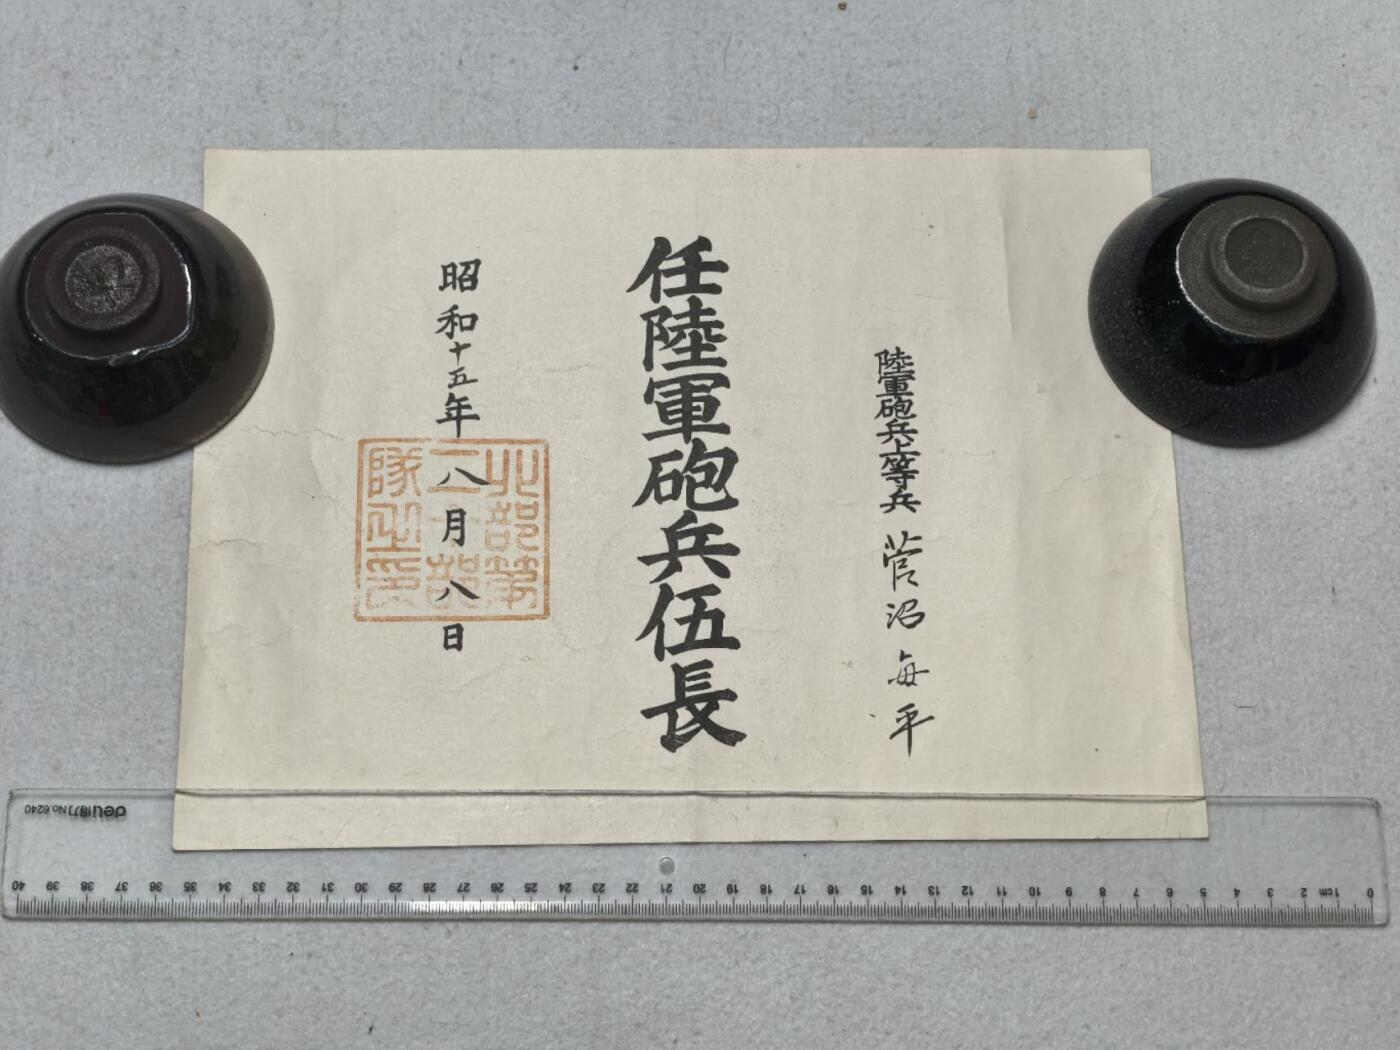 陸軍砲兵上等兵 菅沼每平
任陸軍砲兵伍長
昭和十五年八月八日
北部第
二部
隊之印
deli得力 No.6240
40 39 38 37 36 35 34 33 32 31 30 29 28 27 26 25 24 23 22 21 20 19 18 17 16 15 14 13 12 11 10 9 8 7 6 5 4 3 2 1cm 0